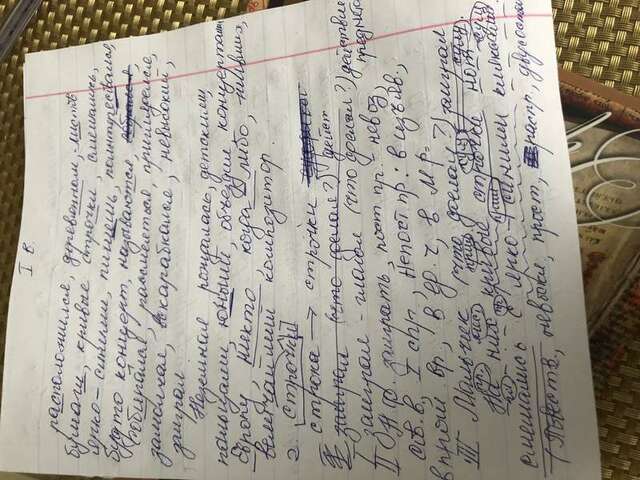 I в.
расположился, деревянном, листв
бумаги, кривые строчки, смешались,
ярко-синими, пишешь, полюбуествовался,
будто концерт, называются,
собирался, рассмеяться, пригляделся,
замолчал, вскарабкался, невысокий,
заиграл
Неземная рождалась, детскими,
пальцами, юный, объездил концертами
Европу, никто, когда-либо, живших,
величайший композитор.
2. строчки
строка → строчки
I заиграл (что сделал?) дейст
I заиграл - глагол (что сделал?) действие
предмета
II Н.ф. заиграть, пост пр. - невоз,
сов. в, I спр, Непост пр: в изъяв.,
в прош. вр, в ед. ч, в м. р.
III Мальчик (что сделал?) заиграл
пр. мест прил сущ сущ
На них кривые строчки нот
гл пр прил сущ
смешались с ярко-синими кляксами.
(Повеств., невоскл, прост, распр, двусостав